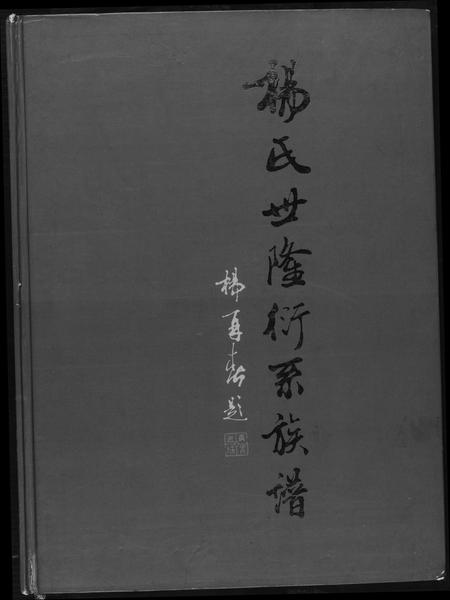 楊氏世隆衍系族譜
楊再春題